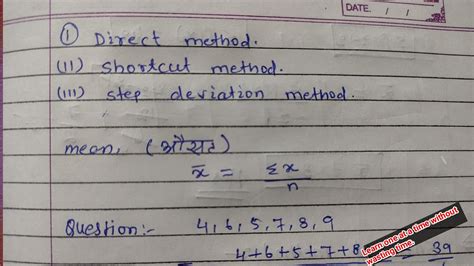 DATE. / /
(I) Direct method.
(II) shortcut method.
(III) step deviation method.
mean, (औसत)
x̄ = Σx
n
Question:- 4, 6, 5, 7, 8, 9
4+6+5+7+8 = 39
Learn one at a time without
wasting time.